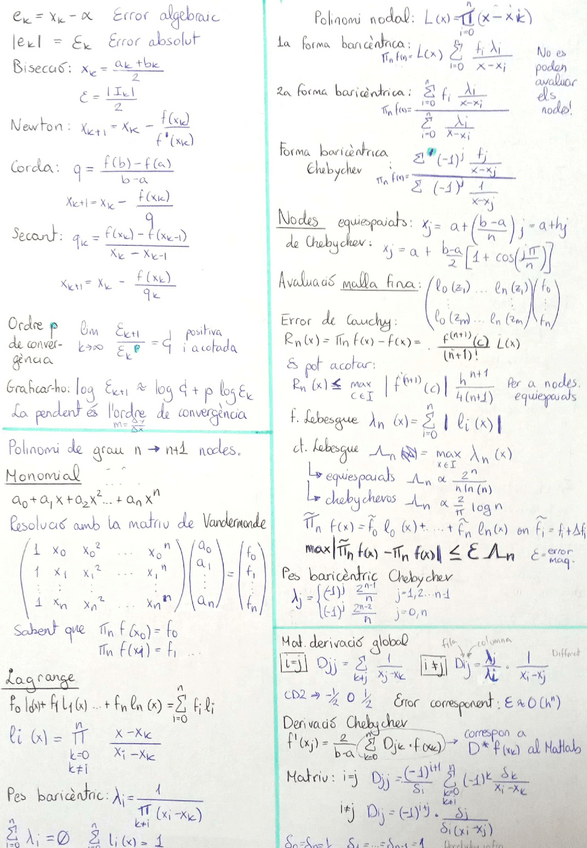 eₖ = xₖ - α Error algebraic
|eₖ| = Ɛₖ Error absolut
Bisecció: xₖ = (aₖ + bₖ)/2
Ɛ = |Iₖ|/2
Newton: xₖ₊₁ = xₖ - f(xₖ)/f'(xₖ)
Corda: q = (f(b) - f(a))/(b-a)
xₖ₊₁ = xₖ - f(xₖ)/q
Secant: qₖ = (f(xₖ) - f(xₖ₋₁))/(xₖ - xₖ₋₁)
xₖ₊₁ = xₖ - f(xₖ)/qₖ
Ordre p
de conver-
gència
lim k→∞ Ɛₖ₊₁/Ɛₖᵖ = ȼ positiva
i acotada
Graficar-ho: log Ɛₖ₊₁ ≈ log ȼ + p log Ɛₖ
La pendent és l'ordre de convergència
m = Δy/Δx
Polinomi de grau n → n+1 nodes.
Monomial
a₀ + a₁x + a₂x² ... + aₙxⁿ
Resolució amb la matriu de Vandermonde
(1 x₀ x₀² ... x₀ⁿ) (a₀) = (f₀)
(1 x₁ x₁² ... x₁ⁿ) (a₁) (f₁)
(1 xₙ xₙ² ... xₙⁿ) (aₙ) (fₙ)
Sabent que Πₙ f(x₀) = f₀
Πₙ f(x₁) = f₁ ...
Lagrange
f₀ l₀(x) + f₁ l₁(x) ... + fₙ lₙ(x) = Σⁿᵢ₌₀ fᵢ lᵢ
lᵢ(x) = Πⁿ k=0 k≠i (x - xₖ)/(xᵢ - xₖ)
Pes baricèntric: λᵢ = 1/Π k≠i (xᵢ - xₖ)
Σⁿᵢ₌₀ λᵢ = 0 Σⁿᵢ₌₀ lᵢ(x) = 1
Polinomi nodal: L(x) = Πⁿᵢ₌₀ (x - xᵢ)
1a forma baricèntrica: Πₙ f(x) = L(x) Σⁿᵢ₌₀ fᵢ λᵢ/(x-xᵢ)
No es
poden
avaluar
els
nodes!
2a forma baricèntrica: Πₙ f(x) = (Σⁿᵢ₌₀ fᵢ λᵢ/(x-xᵢ))/(Σⁿᵢ₌₀ λᵢ/(x-xᵢ))
Forma baricèntrica
Chebychev Πₙ f(x) = (Σ'(-1)ʲ fⱼ/(x-xⱼ))/(Σ (-1)ʲ 1/(x-xⱼ))
Nodes equiespaiats: xⱼ = a + ((b-a)/n) j = a + hj
de Chebychev: xⱼ = a + (b-a)/2 [1 + cos(jπ/n)]
Avaluació malla fina: (l₀(z₁) ... lₙ(z₁)) (f₀)
(l₀(zₘ) ... lₙ(zₘ)) (fₙ)
Error de Cauchy:
Rₙ(x) = Πₙ f(x) - f(x) = - f⁽ⁿ⁺¹⁾(c)/(n+1)! L(x)
Es pot acotar:
Rₙ(x) ≤ max c∈I |f⁽ⁿ⁺¹⁾(c)| hⁿ⁺¹/4(n+1) Per a nodes.
equiespaiats
f. Lebesgue λₙ(x) = Σⁿᵢ₌₀ |lᵢ(x)|
ct. Lebesgue Λₙ = max x∈I λₙ(x)
↳ equiespaiats Λₙ ∝ 2ⁿ/(n ln(n))
↳ chebychevos Λₙ ∝ 2/π log n
Π̃ₙ f(x) = f̃₀ l₀(x) + .... + f̃ₙ lₙ(x) on f̃ᵢ = fᵢ + Δfᵢ
max|Π̃ₙ f(x) - Πₙ f(x)| ≤ Ɛ Λₙ Ɛ = error
maq.
Pes baricèntric Chebychev
λⱼ = {(-1)ʲ 2ⁿ⁻¹/n j=1,2...n-1
{(-1)ʲ 2ⁿ⁻²/n j=0,n
Mat. derivació global fila columna
i=j Dⱼⱼ = Σⁿ k≠j 1/(xⱼ-xₖ) i≠j Dᵢⱼ = λⱼ/λᵢ · 1/(xᵢ-xⱼ)
CD2 → -½ 0 ½ Error corresponent: Ɛ ≈ O(hⁿ)
Derivació Chebychev
f'(xⱼ) = 2/(b-a) Σⁿₖ₌₀ Dⱼₖ · f(xₖ) → correspon a
D* f(xₖ) al Matlab
Matriu: i=j Dⱼⱼ = (-1)ⁱ⁺¹/δᵢ Σⁿ k=0 k≠i (-1)ᵏ δₖ/(xᵢ-xₖ)
i≠j Dᵢⱼ = (-1)ⁱ⁺ʲ · δⱼ/(δᵢ(xᵢ-xⱼ))
δ₀=δₙ=½ δ₁=...=δₙ₋₁=1